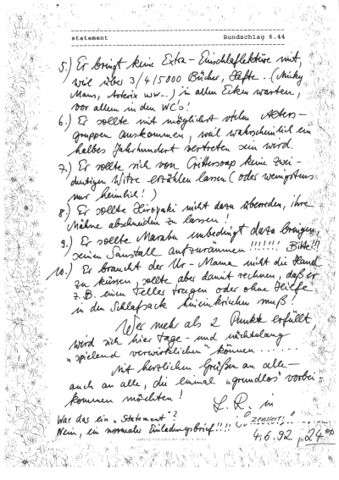 statement Rundschlag 6.44
5.) Er bringt keine Extra-Einschlaflektüre mit,
weil über 3/4/5000 Bücher, Hefte.. (Micky
Maus, Asterix usw..) in allen Ecken warten,
vor allem in den WC's!
6.) Er sollte mit möglichst vielen Alters-
gruppen auskommen, weil wahrscheinlich ein
halbes Jahrhundert vertreten sein wird.
7.) Er sollte sich von Crittersoap keine zwei-
deutigen Witze erzählen lassen (oder wenigstens
nur heimlich!)
8.) Er sollte Hiropaki nicht dazu überreden, ihre
Mähne abschneiden zu lassen!
9.) Er sollte Maraba unbedingt dazu bringen,
seinen Saustall aufzuräumen!!!!!! Bitte!!!
10.) Er braucht der Ur-Mama nicht die Hand
zu küssen, sollte aber damit rechnen, daß er
z.B. einen Teller tragen oder ohne Hilfe
in den Schlafsack hineinkriechen muß!
Wer mehr als 2 Punkte erfüllt
wird sich hier tage- und nächtelang
"spielend verwirklichen" können.....
Mit herzlichen Grüßen an alle-
auch an alle, die einmal "grundlos" vorbei-
kommen möchten!
L. R. in
War das ein "Statement"?
Nein, ein normaler Einladungsbrief!!!!
4.6.92 "24⁰⁰